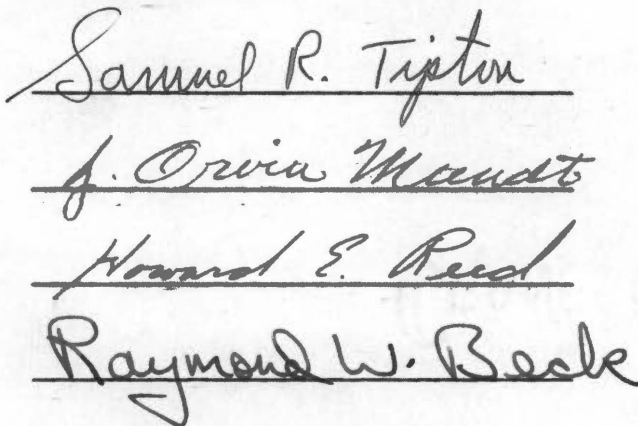 Samuel R. Tipton
J. Orvin Mundt
Howard E. Reed
Raymond W. Beck